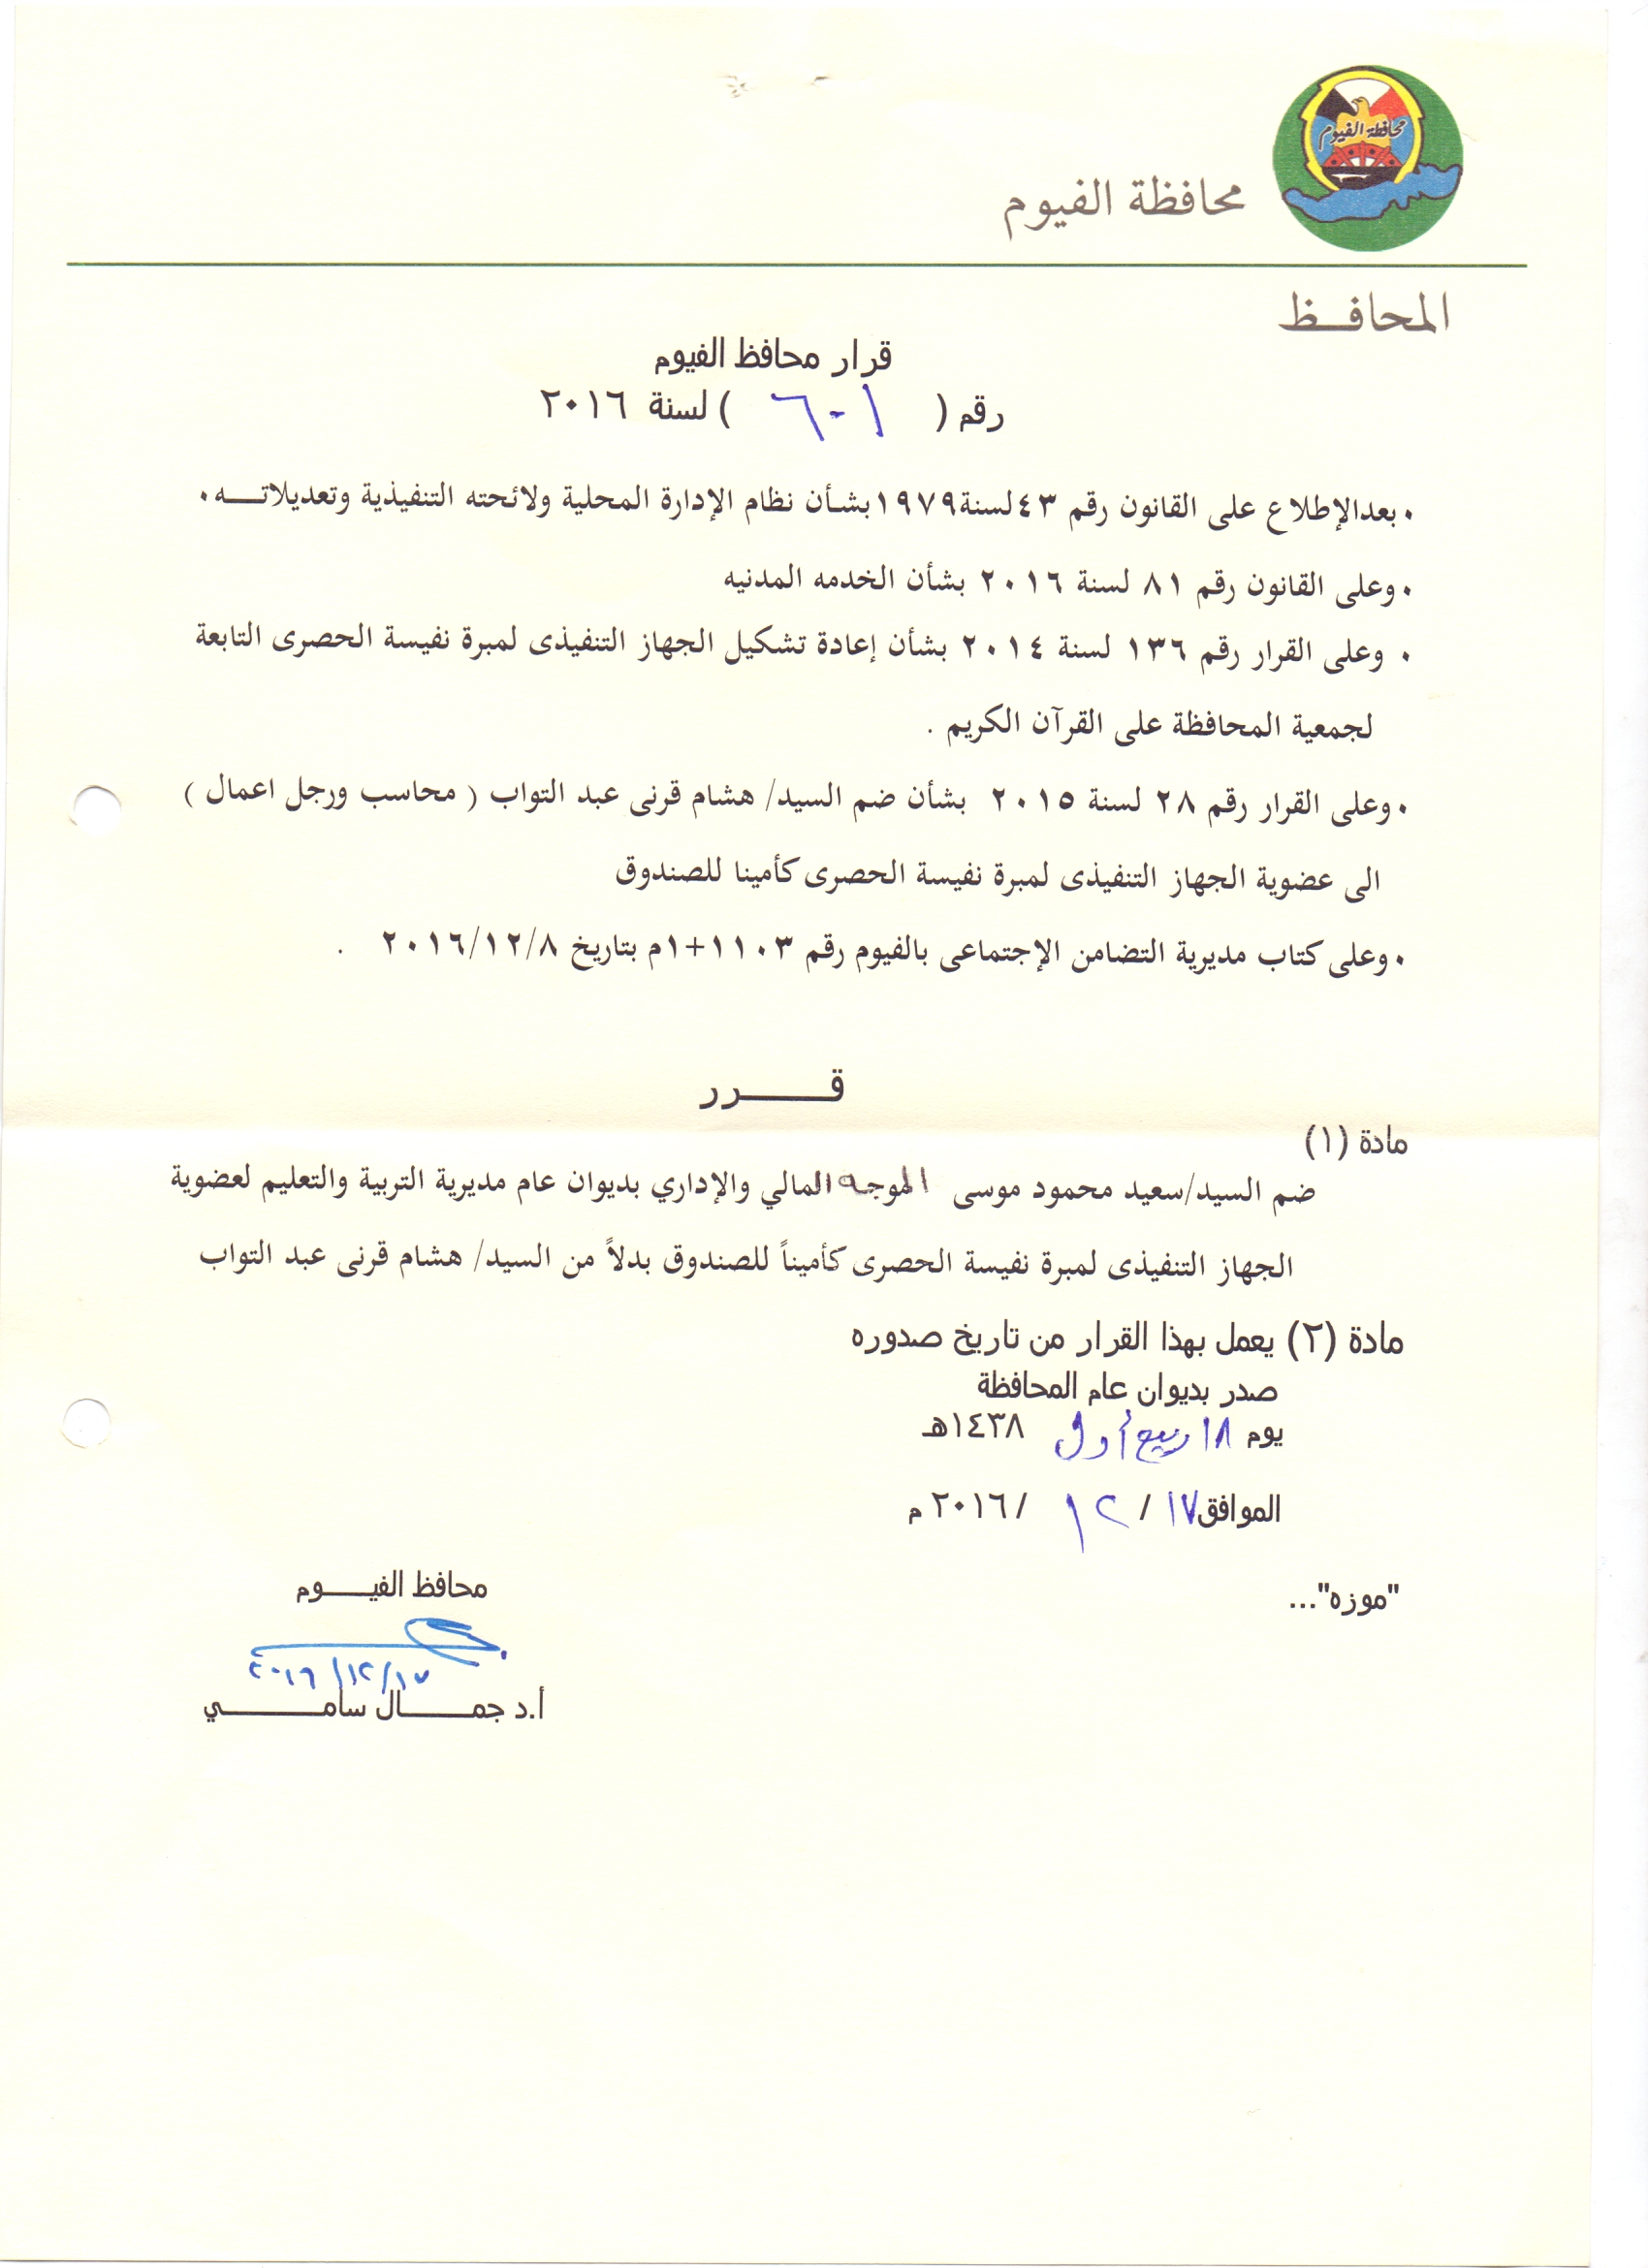 محافظة الفيوم
محافظة الفيوم
المحافـــظ
قرار محافظ الفيوم
رقم ( ٦٠١ ) لسنة ٢٠١٦
٠ بعدالإطلاع على القانون رقم ٤٣لسنة١٩٧٩بشأن نظام الإدارة المحلية ولائحته التنفيذية وتعديلاتـــه٠
٠ وعلى القانون رقم ٨١ لسنة ٢٠١٦ بشأن الخدمه المدنيه
٠ وعلى القرار رقم ١٣٦ لسنة ٢٠١٤ بشأن إعادة تشكيل الجهاز التنفيذى لمبرة نفيسة الحصرى التابعة
لجمعية المحافظة على القرآن الكريم .
٠ وعلى القرار رقم ٢٨ لسنة ٢٠١٥ بشأن ضم السيد/ هشام قرنى عبد التواب ( محاسب ورجل اعمال )
الى عضوية الجهاز التنفيذى لمبرة نفيسة الحصرى كأمينا للصندوق
٠ وعلى كتاب مديرية التضامن الإجتماعى بالفيوم رقم ١١٠٣+١م بتاريخ ٢٠١٦/١٢/٨ .
قـــــــرر
مادة (١)
ضم السيد/سعيد محمود موسى الموجه المالي والإداري بديوان عام مديرية التربية والتعليم لعضوية
الجهاز التنفيذى لمبرة نفيسة الحصرى كأميناً للصندوق بدلاً من السيد/ هشام قرنى عبد التواب
مادة (٢) يعمل بهذا القرار من تاريخ صدوره
صدر بديوان عام المحافظة
يوم ١٨ ربيع أول ١٤٣٨هـ
الموافق ١٧ / ١٢ / ٢٠١٦ م
"موزه"...
محافظ الفيـــــوم
٢٠١٦/١٢/١٧
أ.د جمـــــــال سامــــــــــي